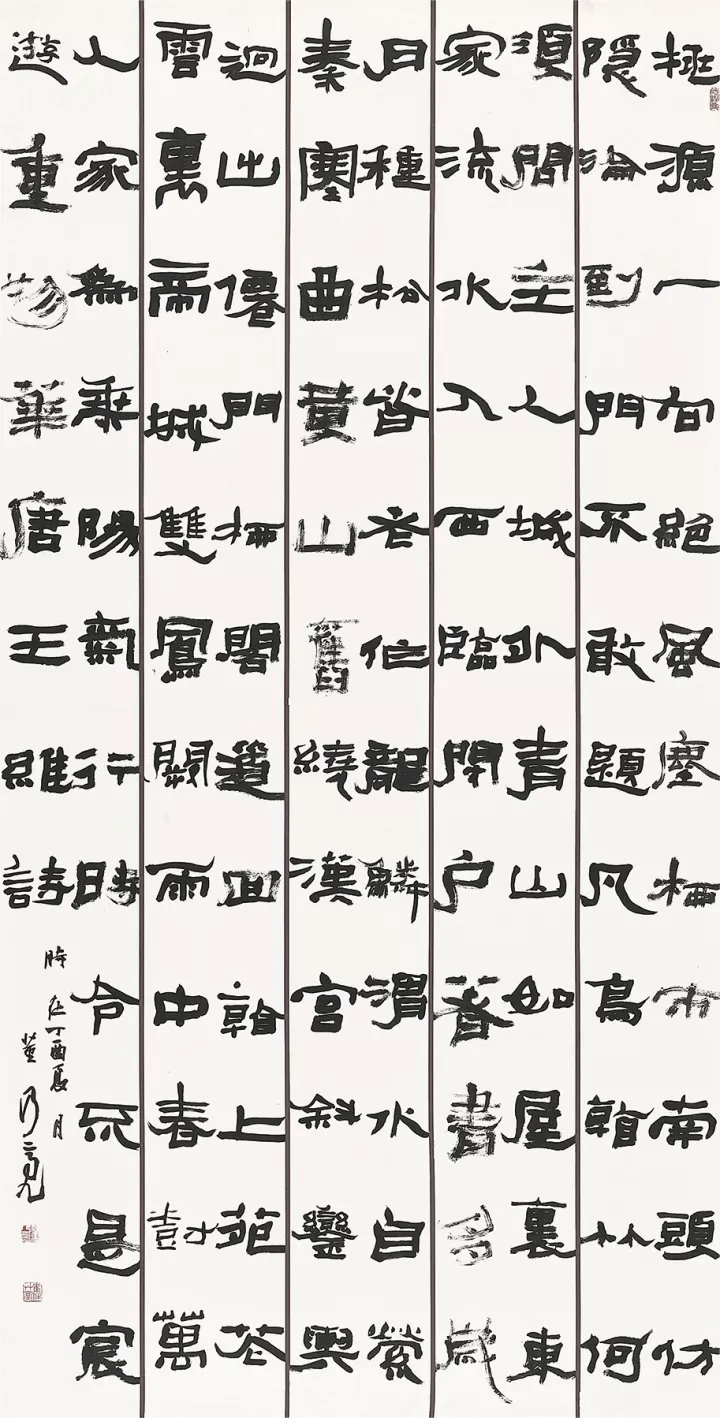 桃源一向絶風塵柳市南頭訪
隱淪到門不敢題凡鳥看竹何
須問主人城外青山如屋裏東
家流水入西鄰閉户著書多歲
月種松皆老作龍鱗渭水自縈
秦塞曲黄山舊繞漢宫斜鑾輿
迥出僊門柳閣道迴看上苑花
雲裏帝城雙鳳闕雨中春樹萬
人家為乘陽氣行時令不是宸
遊重物華唐王維詩
時在丁酉夏月
董乃亮